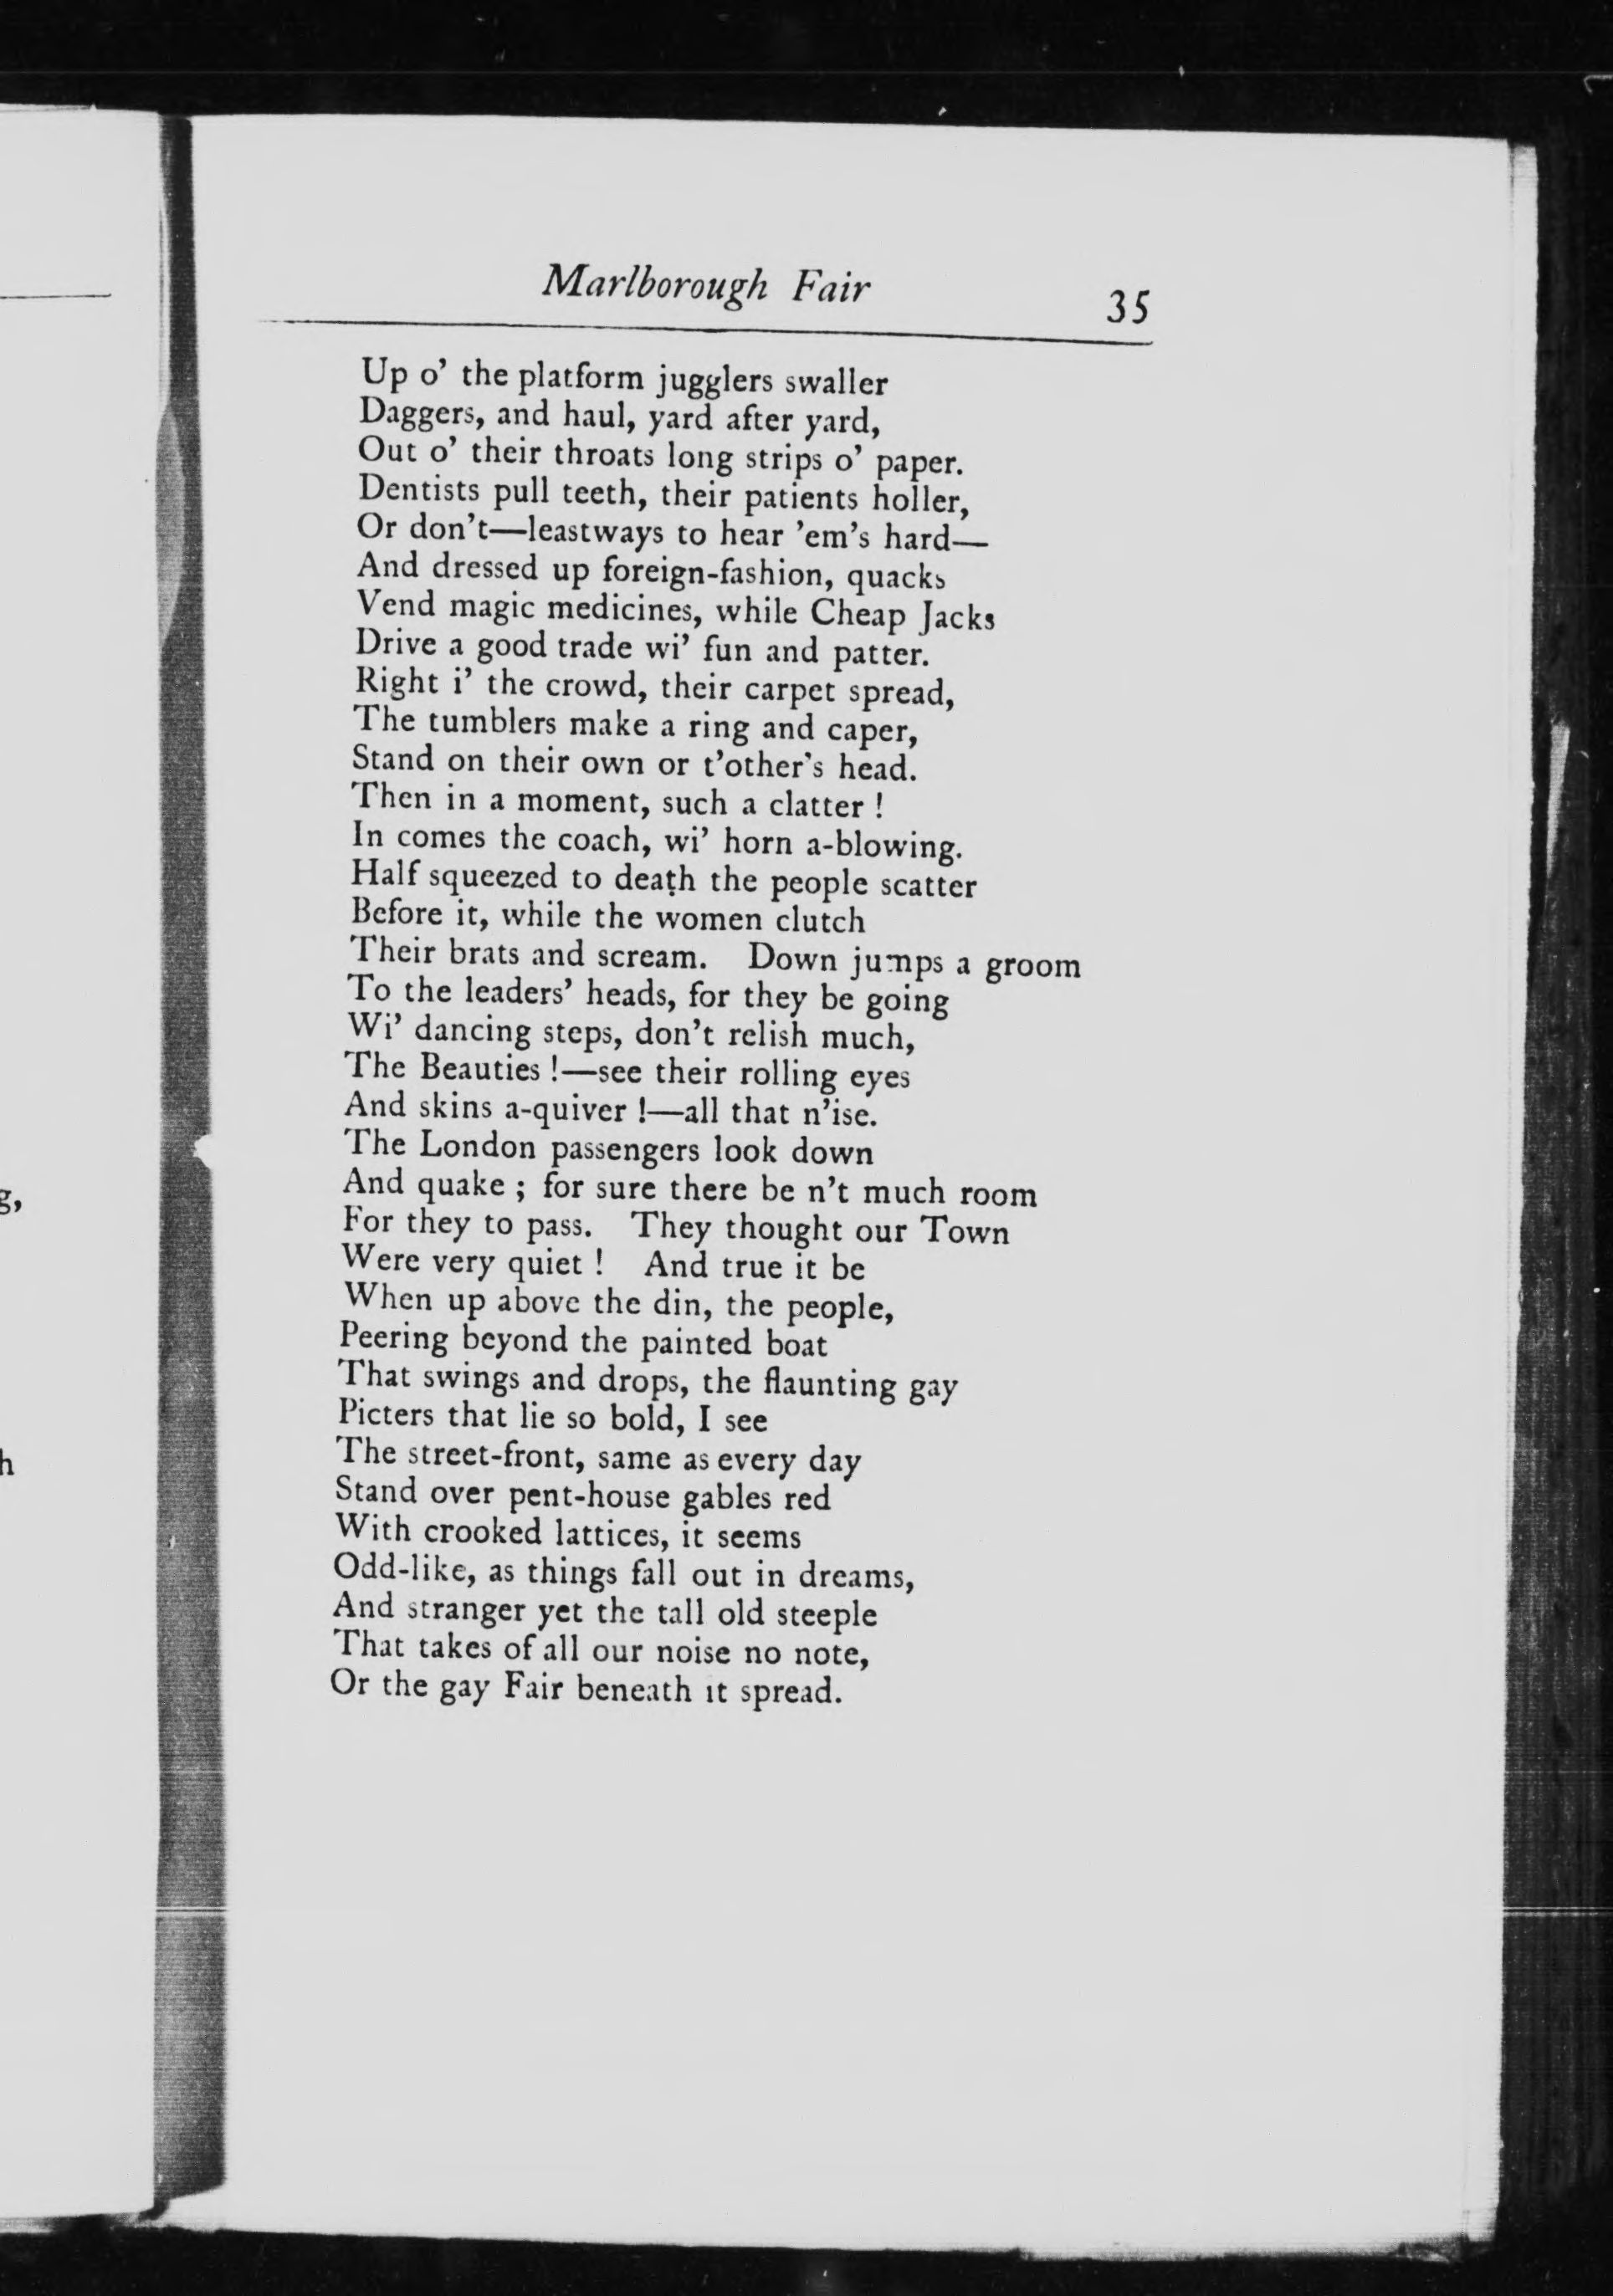 Marlborough Fair 35
Up o' the platform jugglers swaller
Daggers, and haul, yard after yard,
Out o' their throats long strips o' paper.
Dentists pull teeth, their patients holler,
Or don't—leastways to hear 'em's hard—
And dressed up foreign-fashion, quacks
Vend magic medicines, while Cheap Jacks
Drive a good trade wi' fun and patter.
Right i' the crowd, their carpet spread,
The tumblers make a ring and caper,
Stand on their own or t'other's head.
Then in a moment, such a clatter !
In comes the coach, wi' horn a-blowing.
Half squeezed to death the people scatter
Before it, while the women clutch
Their brats and scream. Down jumps a groom
To the leaders' heads, for they be going
Wi' dancing steps, don't relish much,
The Beauties !—see their rolling eyes
And skins a-quiver !—all that n'ise.
The London passengers look down
And quake ; for sure there be n't much room
For they to pass. They thought our Town
Were very quiet ! And true it be
When up above the din, the people,
Peering beyond the painted boat
That swings and drops, the flaunting gay
Picters that lie so bold, I see
The street-front, same as every day
Stand over pent-house gables red
With crooked lattices, it seems
Odd-like, as things fall out in dreams,
And stranger yet the tall old steeple
That takes of all our noise no note,
Or the gay Fair beneath it spread.
g,
h